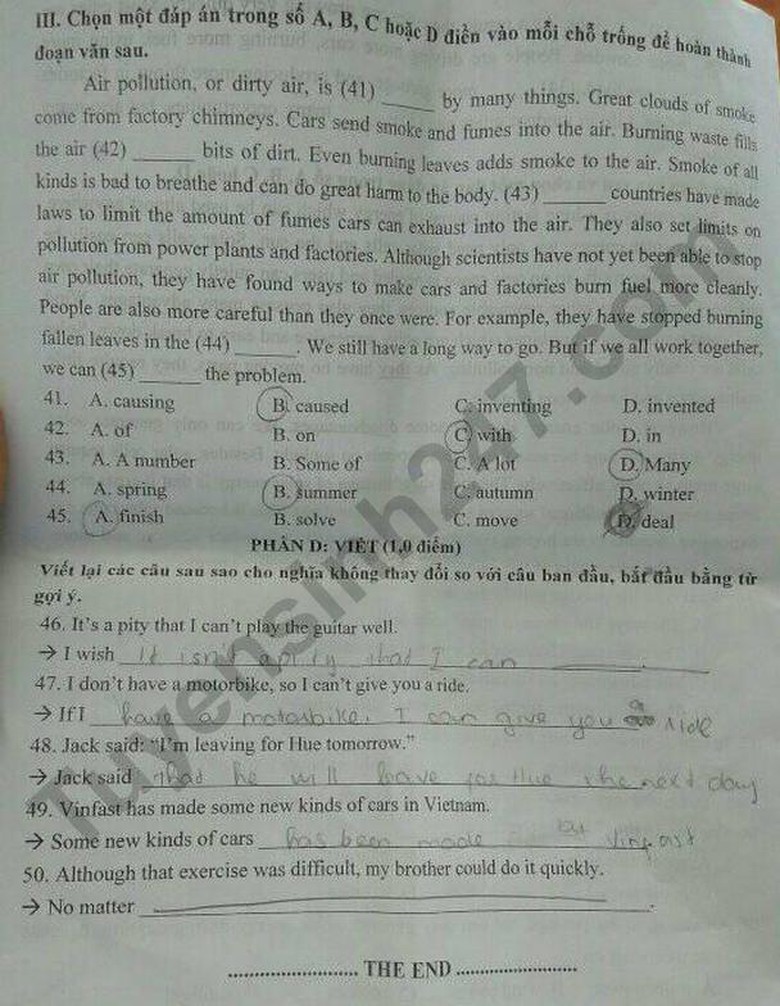 III. Chọn một đáp án trong số A, B, C hoặc D điền vào mỗi chỗ trống để hoàn thành
đoạn văn sau.
Air pollution, or dirty air, is (41) ______ by many things. Great clouds of smoke
come from factory chimneys. Cars send smoke and fumes into the air. Burning waste fills
the air (42) ______ bits of dirt. Even burning leaves adds smoke to the air. Smoke of all
kinds is bad to breathe and can do great harm to the body. (43) ______ countries have made
laws to limit the amount of fumes cars can exhaust into the air. They also set limits on
pollution from power plants and factories. Although scientists have not yet been able to stop
air pollution, they have found ways to make cars and factories burn fuel more cleanly.
People are also more careful than they once were. For example, they have stopped burning
fallen leaves in the (44) ______. We still have a long way to go. But if we all work together,
we can (45) ______ the problem.
41. A. causing B. caused C. inventing D. invented
42. A. of B. on C. with D. in
43. A. A number B. Some of C. A lot D. Many
44. A. spring B. summer C. autumn D. winter
45. A. finish B. solve C. move D. deal
PHẦN D: VIẾT (1,0 điểm)
Viết lại các câu sau sao cho nghĩa không thay đổi so với câu ban đầu, bắt đầu bằng từ
gợi ý.
46. It's a pity that I can't play the guitar well.
→ I wish It isn't a pity that I can
47. I don't have a motorbike, so I can't give you a ride.
→ If I have a motorbike, I can give you a ride
48. Jack said: "I'm leaving for Hue tomorrow."
→ Jack said that he will leave for Hue the next day
49. Vinfast has made some new kinds of cars in Vietnam.
→ Some new kinds of cars has been made by Vinfast
50. Although that exercise was difficult, my brother could do it quickly.
→ No matter ______.
THE END
Tuyensinh247.com